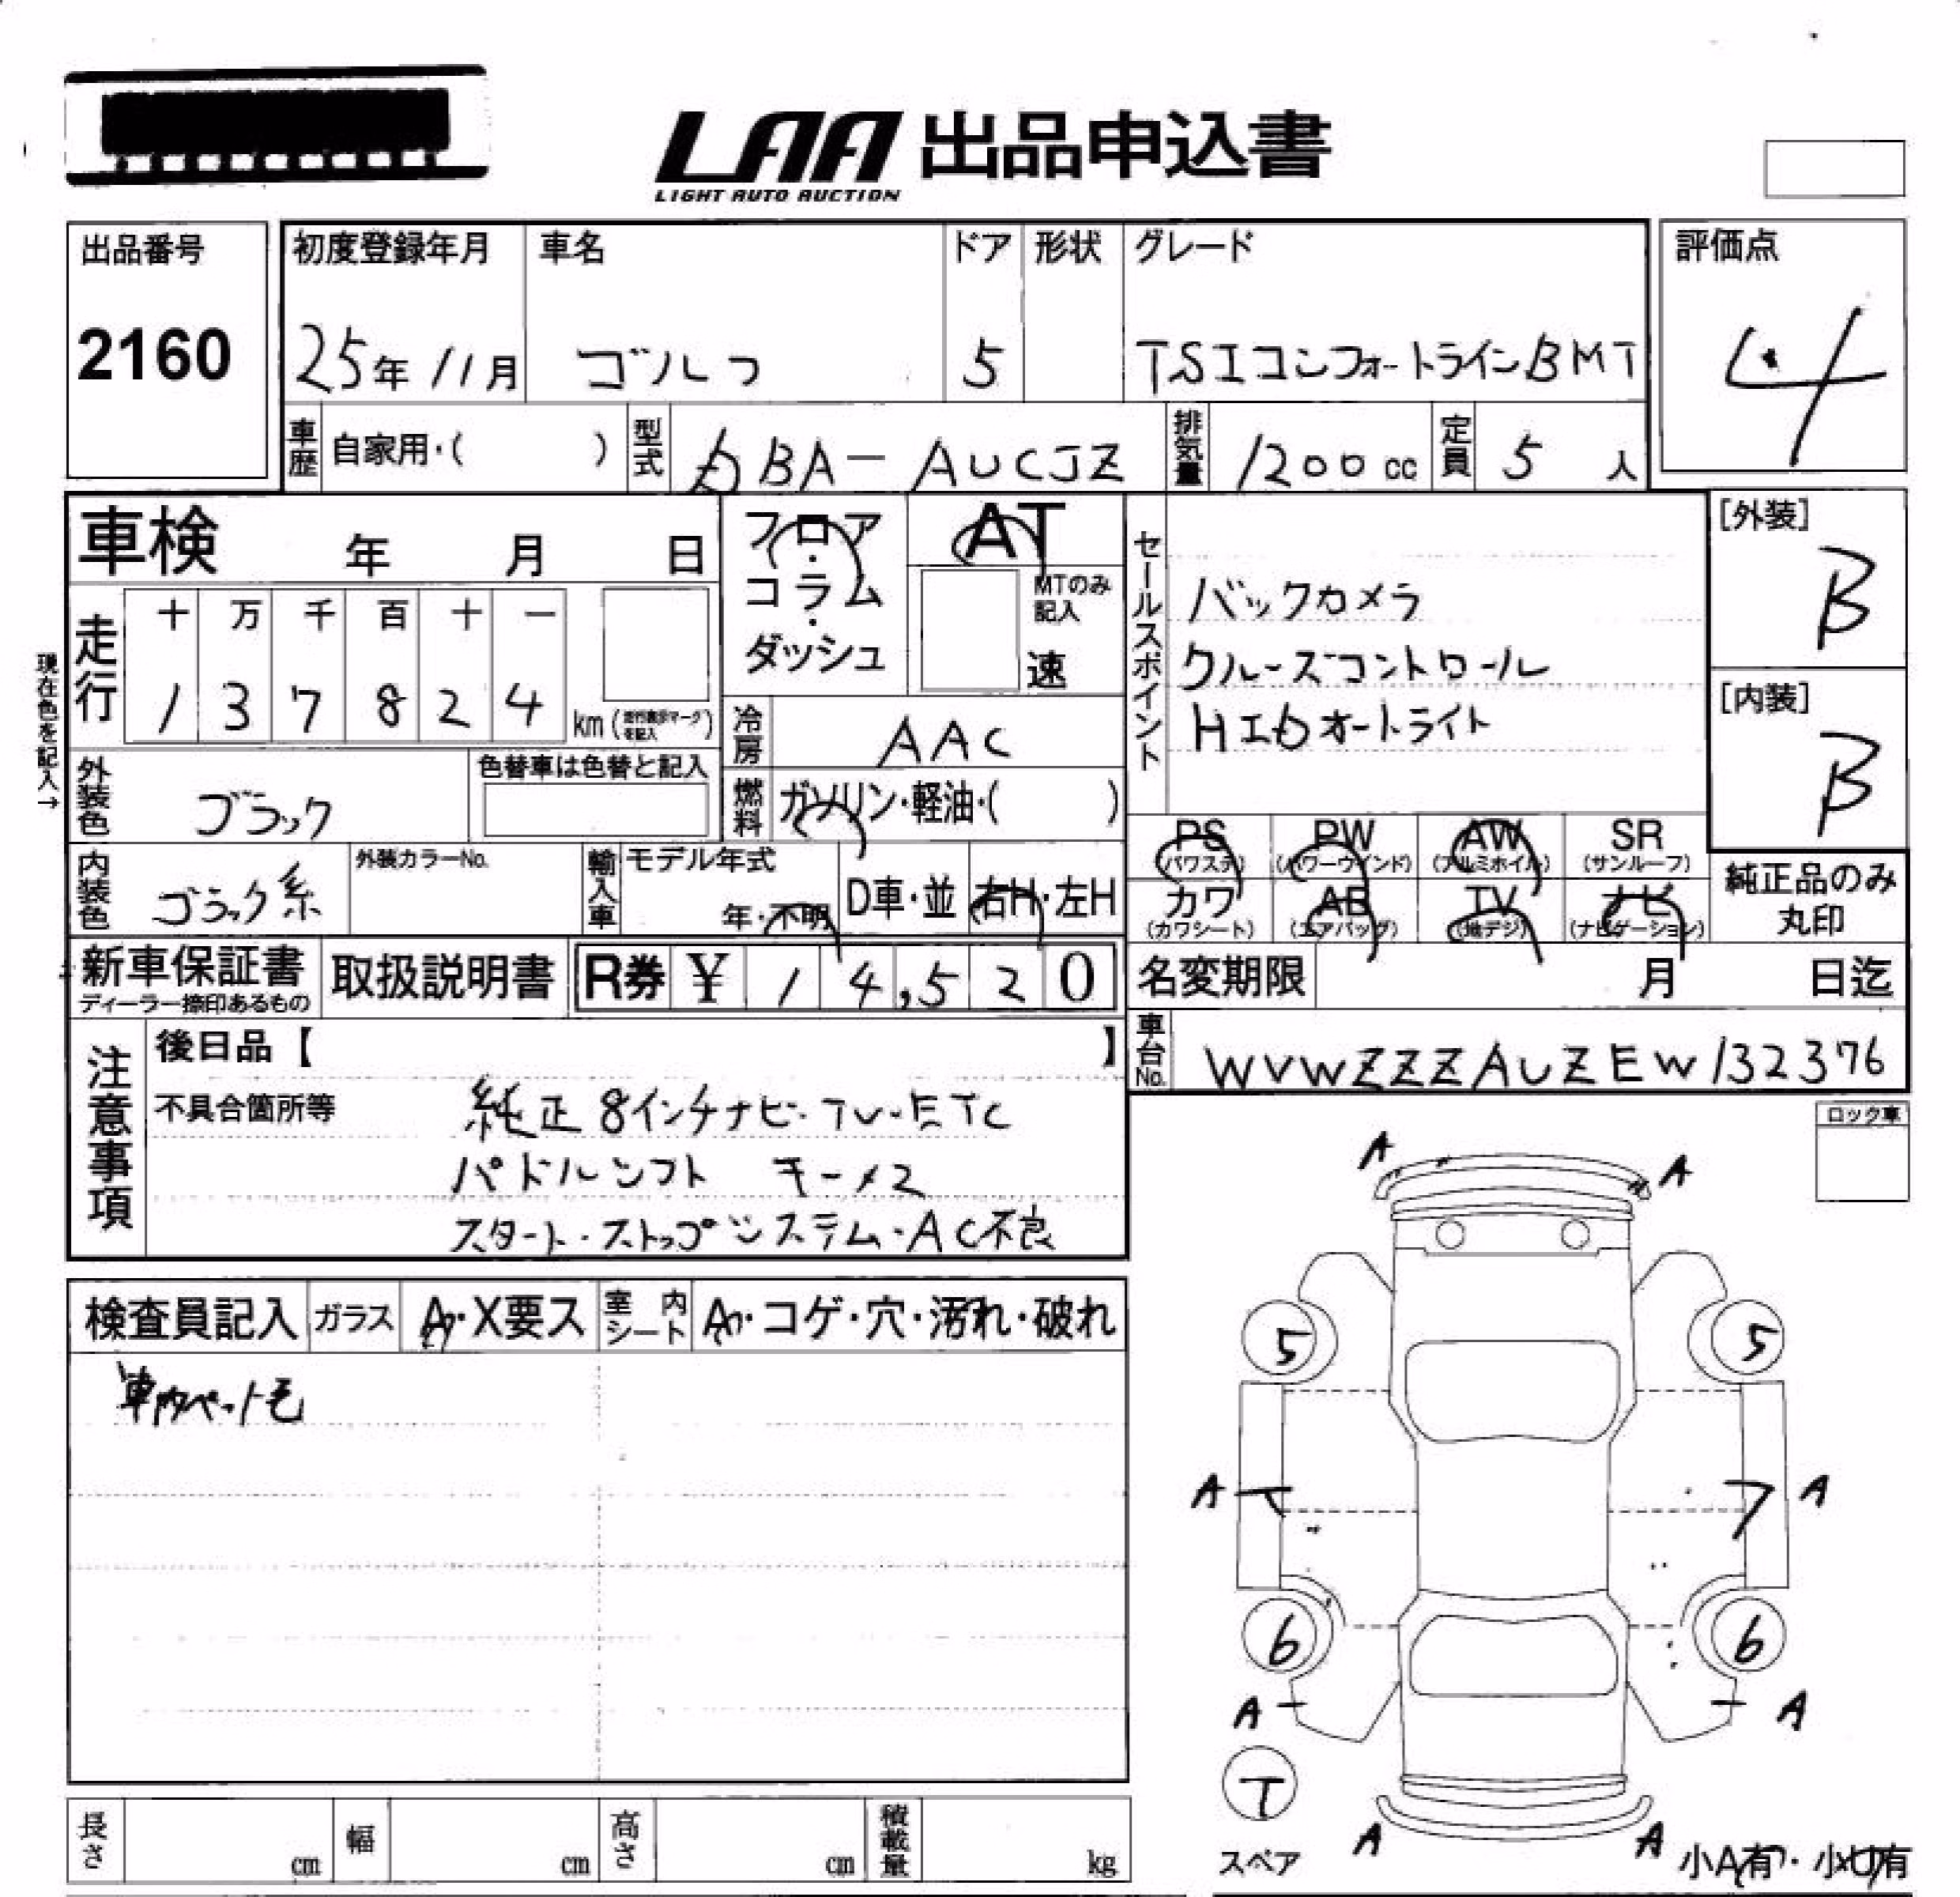 LAA 出品申込書
LIGHT AUTO AUCTION
出品番号
2160
初度登録年月
25年 11月
車名
ゴルフ
ドア
5
形状
グレード
TSIコンフォートラインBMT
評価点
4
車歴
自家用・( )
型式
DBA-AUCJZ
排気量
1200 cc
定員
5 人
車検 年 月 日
フロア・コラム・ダッシュ
AT
MTのみ記入
速
セールスポイント
バックカメラ
クルーズコントロール
HIDオートライト
[外装]
B
[内装]
B
現在色を記入→
走行
十 万 千 百 十 一
1 3 7 8 2 4
km (走行表示マークを記入)
冷房
AAC
外装色
ブラック
色替車は色替と記入
燃料
ガソリン・軽油・( )
内装色
ブラック系
外装カラーNo.
輸入車
モデル年式
年・不明
D車・並
右H・左H
PS (パワステ)
PW (パワーウインド)
AW (アルミホイル)
SR (サンルーフ)
カワ (カワシート)
AB (エアバッグ)
TV (地デジ)
ナビ (ナビゲーション)
純正品のみ
丸印
新車保証書
ディーラー捺印あるもの
取扱説明書
R券 ¥ 1 4,5 2 0
名変期限 月 日迄
車台No.
WVWZZZAUZEW132376
注意事項
後日品【 】
不具合箇所等
純正8インチナビ・TV・ETC
パドルシフト キー×2
スタート・ストップシステム・AC不良
ロック車
検査員記入
ガラス
A・X要ス
室内シート
A・コゲ・穴・汚れ・破れ
車内ペット毛
A A
5 5
A A
6 6
A A
T
スペア
A A
小A有・小U有
長さ cm
幅 cm
高さ cm
積載量 kg